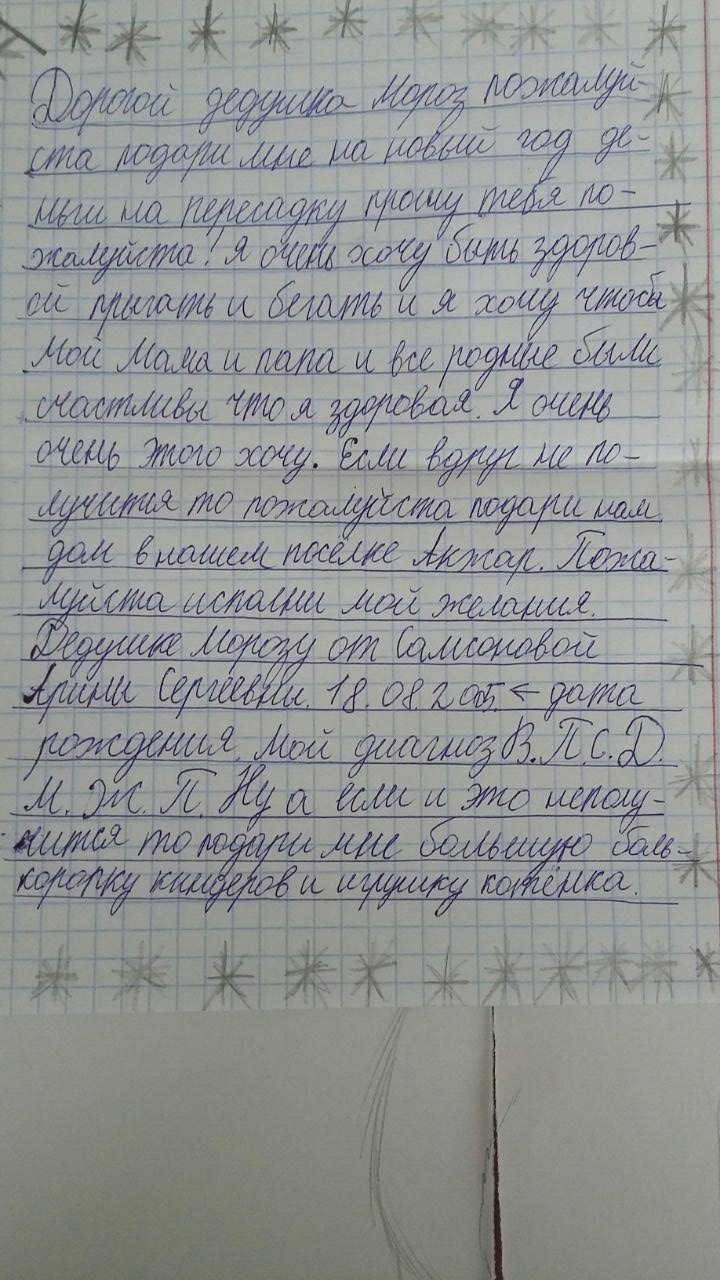 Дорогой дедушка Мороз пожалуй-
ста подари мне на новый год де-
ньги на пересадку прошу тебя по-
жалуйста! Я очень хочу быть здоров-
ой прыгать и бегать и я хочу чтобы
мой Мама и папа и все родные были
счастливы что я здоровая. Я очень
очень этого хочу. Если вдруг не по-
лучится то пожалуйста подари нам
дом в нашем посёлке Акжар. Пожа-
луйста исполни мой желания.
Дедушке Морозу от Самсоновой
Арины Сергеевны. 18.08.2005 ← дата
рождения. Мой диагноз В.П.С.Д.
М.Ж.П. Ну а если и это неполу-
чится то подари мне большую боль-
коропку киндеров и игрушку котёнка.